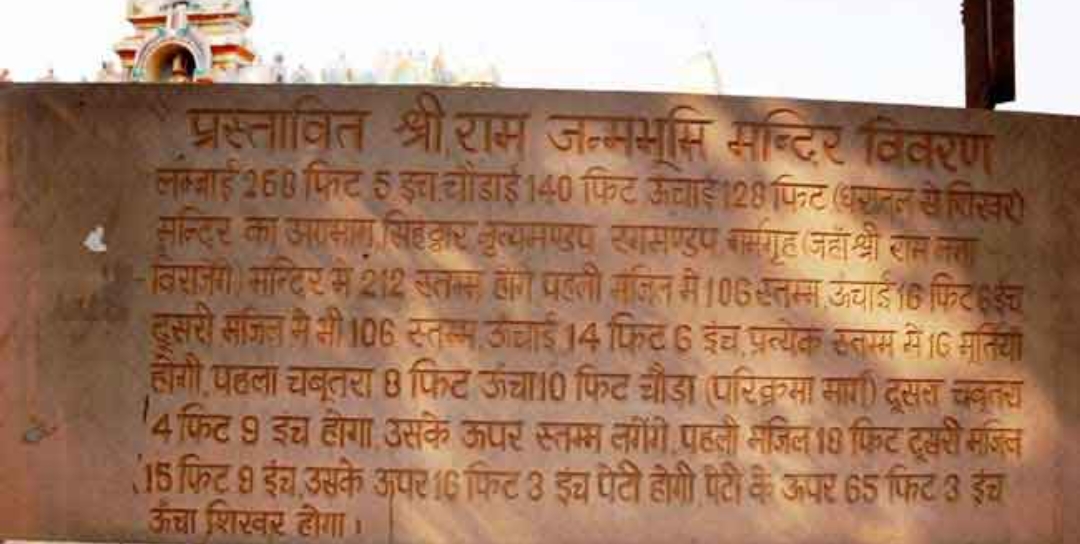 प्रस्तावित श्री राम जन्मभूमि मन्दिर विवरण
लम्बाई 268 फिट 5 इंच.चौडाई 140 फिट ऊंचाई 128 फिट (धरातल से शिखर)
मन्दिर का अग्रभाग,सिंहद्वार,नृत्यमण्डप, रंगमण्डप, गर्भगृह (जहाँ श्री राम लला
विराजेंगे) मन्दिर में 212 स्तम्भ होंगे पहली मंजिल में 106 स्तम्भ ऊंचाई 16 फिट 6 इंच
दूसरी मंजिल में भी 106 स्तम्भ ऊंचाई 14 फिट 6 इंच,प्रत्येक स्तम्भ में 16 मूर्तियां
होंगी,पहला चबूतरा 8 फिट ऊंचा 10 फिट चौडा (परिक्रमा मार्ग) दूसरा चबूतरा
4 फिट 9 इंच होगा,उसके ऊपर स्तम्भ लगेंगे,पहली मंजिल 18 फिट दूसरी मंजिल
15 फिट 9 इंच,उसके ऊपर 16 फिट 3 इंच पेटी होगी पेटी के ऊपर 65 फिट 3 इंच
ऊंचा शिखर होगा ।